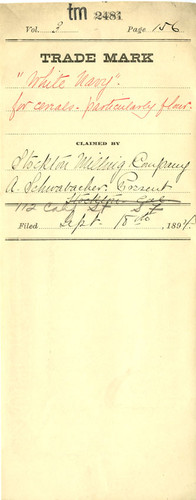 tm 2481
Vol. 3 Page 156
TRADE MARK
"White Navy".
for cereals. particularly flour.
CLAIMED BY
Stockton Milling Company
A. Schwabacher. Present
Stockton Cal
112 Cal St S.F.
Filed Sept. 18 1894